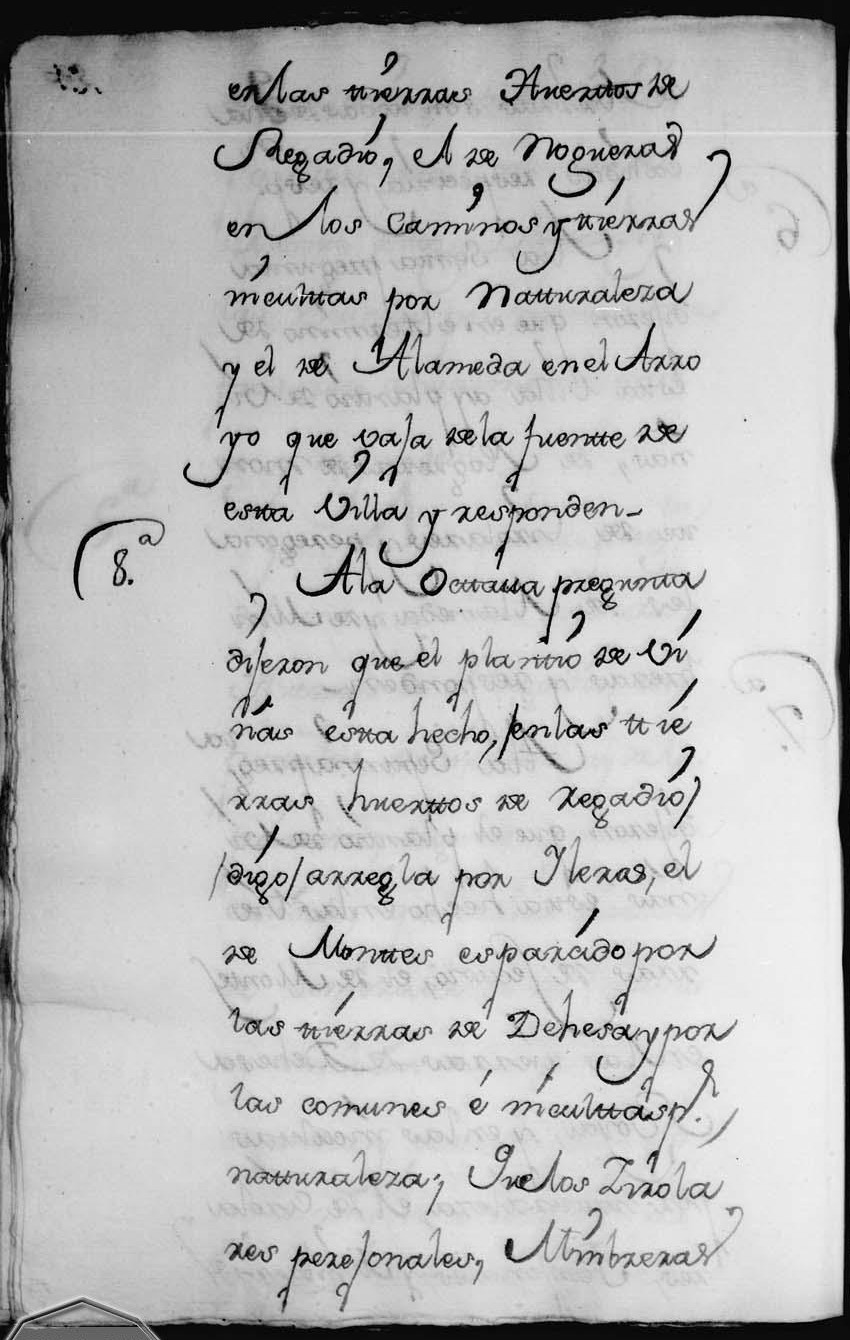 en las tierras Huertos de
Regadio, el de Nogueras
en los Caminos y tierras
incultas por Naturaleza
y el de Alameda en el Arro
yo que vaja de la fuente de
esta Villa y responden_
8.ª A la Octava pregunta
dijeron que el plantio de Vi
ñas esta hecho, /en las tie
rras huertos de regadio/
/digo/ arregla por Ileras, el
de Montes esparcido por
las tierras de Dehesa y por
las comunes é incultas p.r
naturaleza; Que los
res, Mimbreras